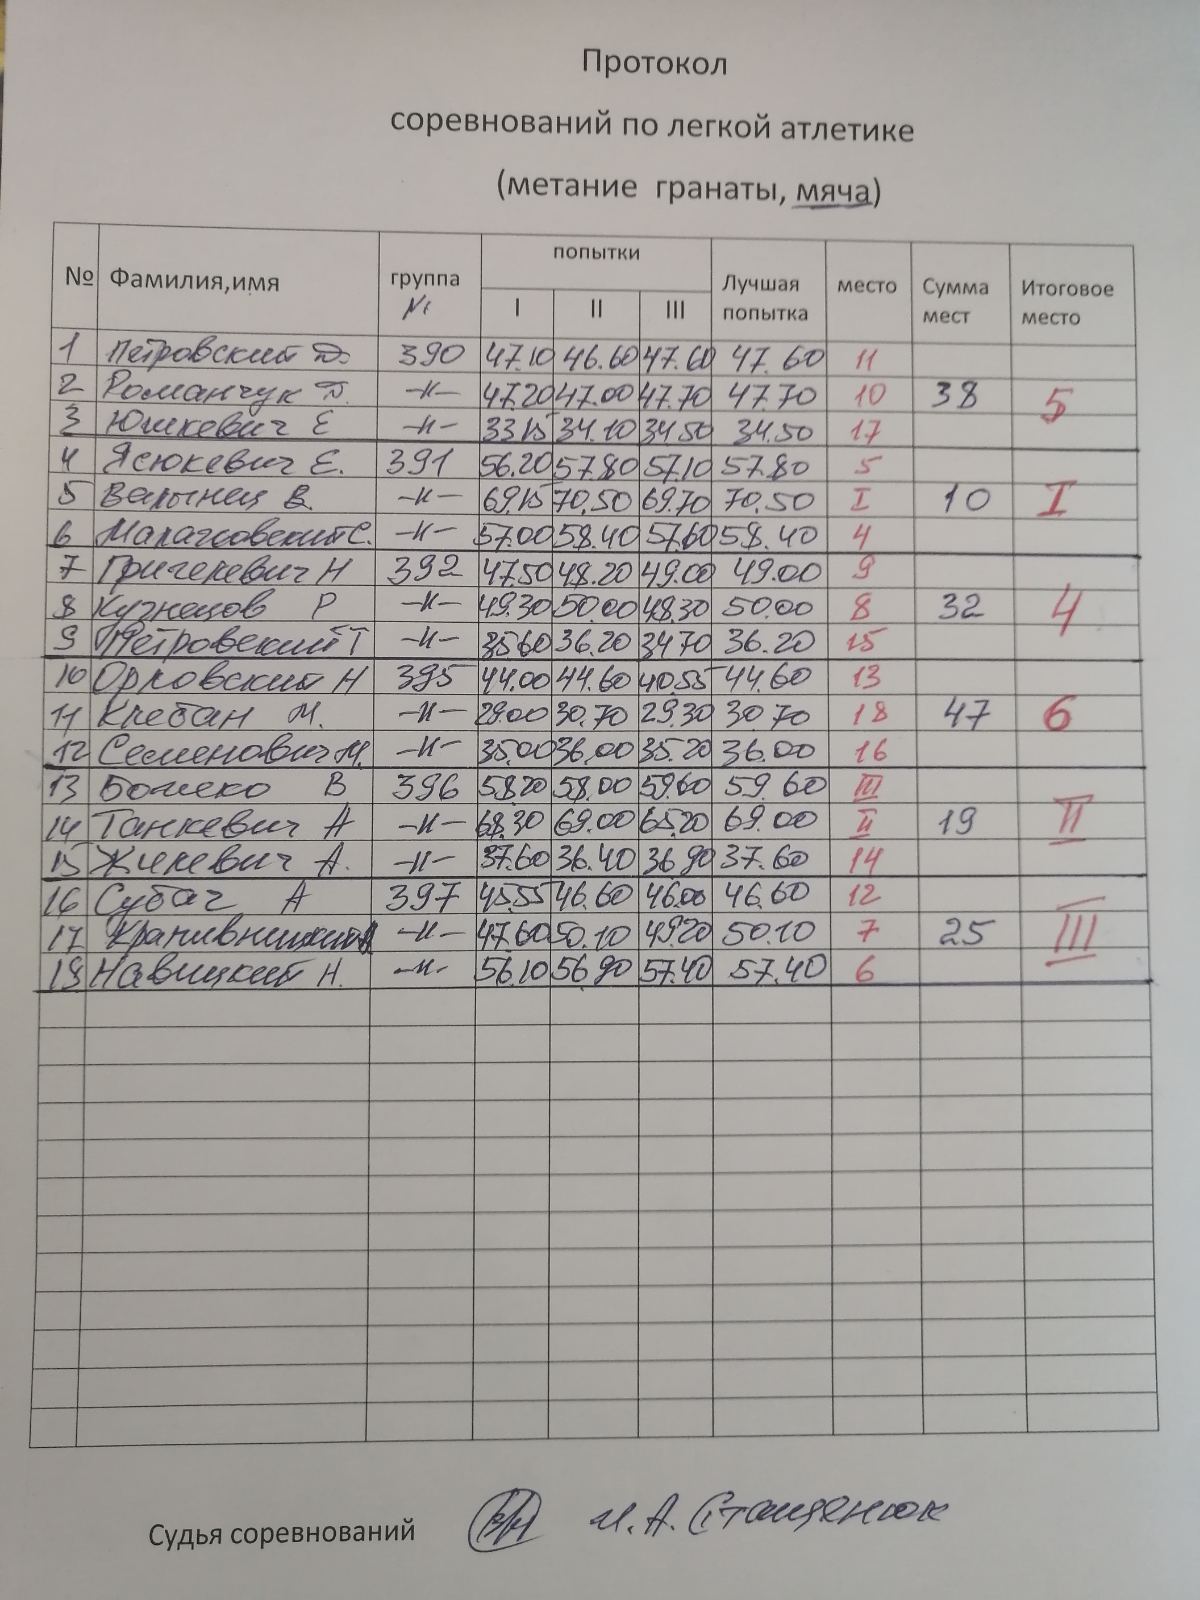 Протокол
соревнований по легкой атлетике
(метание гранаты, мяча)
№ Фамилия,имя группа № попытки I II III Лучшая попытка место Сумма мест Итоговое место
1 Петровский Д. 390 47.10 46.60 47.60 47.60 11
2 Романчук Д. -//- 47.20 47.00 47.70 47.70 10 38 5
3 Юшкевич Е -//- 33.15 34.10 34.50 34.50 17
4 Ясюкевич Е. 391 56.20 57.80 57.10 57.80 5
5 Валынец В. -//- 69.15 70.50 69.70 70.50 I 10 I
6 С. -//- 57.00 58.40 57.60 58.40 4
7 Григелевич Н 392 47.50 48.20 49.00 49.00 9
8 Кузнецов Р -//- 49.30 50.00 48.30 50.00 8 32 4
9 Петровский Т -//- 35.60 36.20 34.70 36.20 15
10 Орловский Н 395 44.00 44.60 40.55 44.60 13
11 Клебан М. -//- 29.00 30.70 29.30 30.70 18 47 6
12 Семенович М. -//- 35.00 36.00 35.20 36.00 16
13 Божко В 396 58.20 58.00 59.60 59.60 III
14 Танкевич А -//- 68.30 69.00 65.20 69.00 II 19 II
15 Жилевич А. -//- 37.60 36.40 36.90 37.60 14
16 Субач А 397 45.55 46.60 46.00 46.60 12
17 -//- 47.60 50.10 49.20 50.10 7 25 III
18 Навицкий Н. -//- 56.10 56.90 57.40 57.40 6
Судья соревнований И.А. Стащенюк